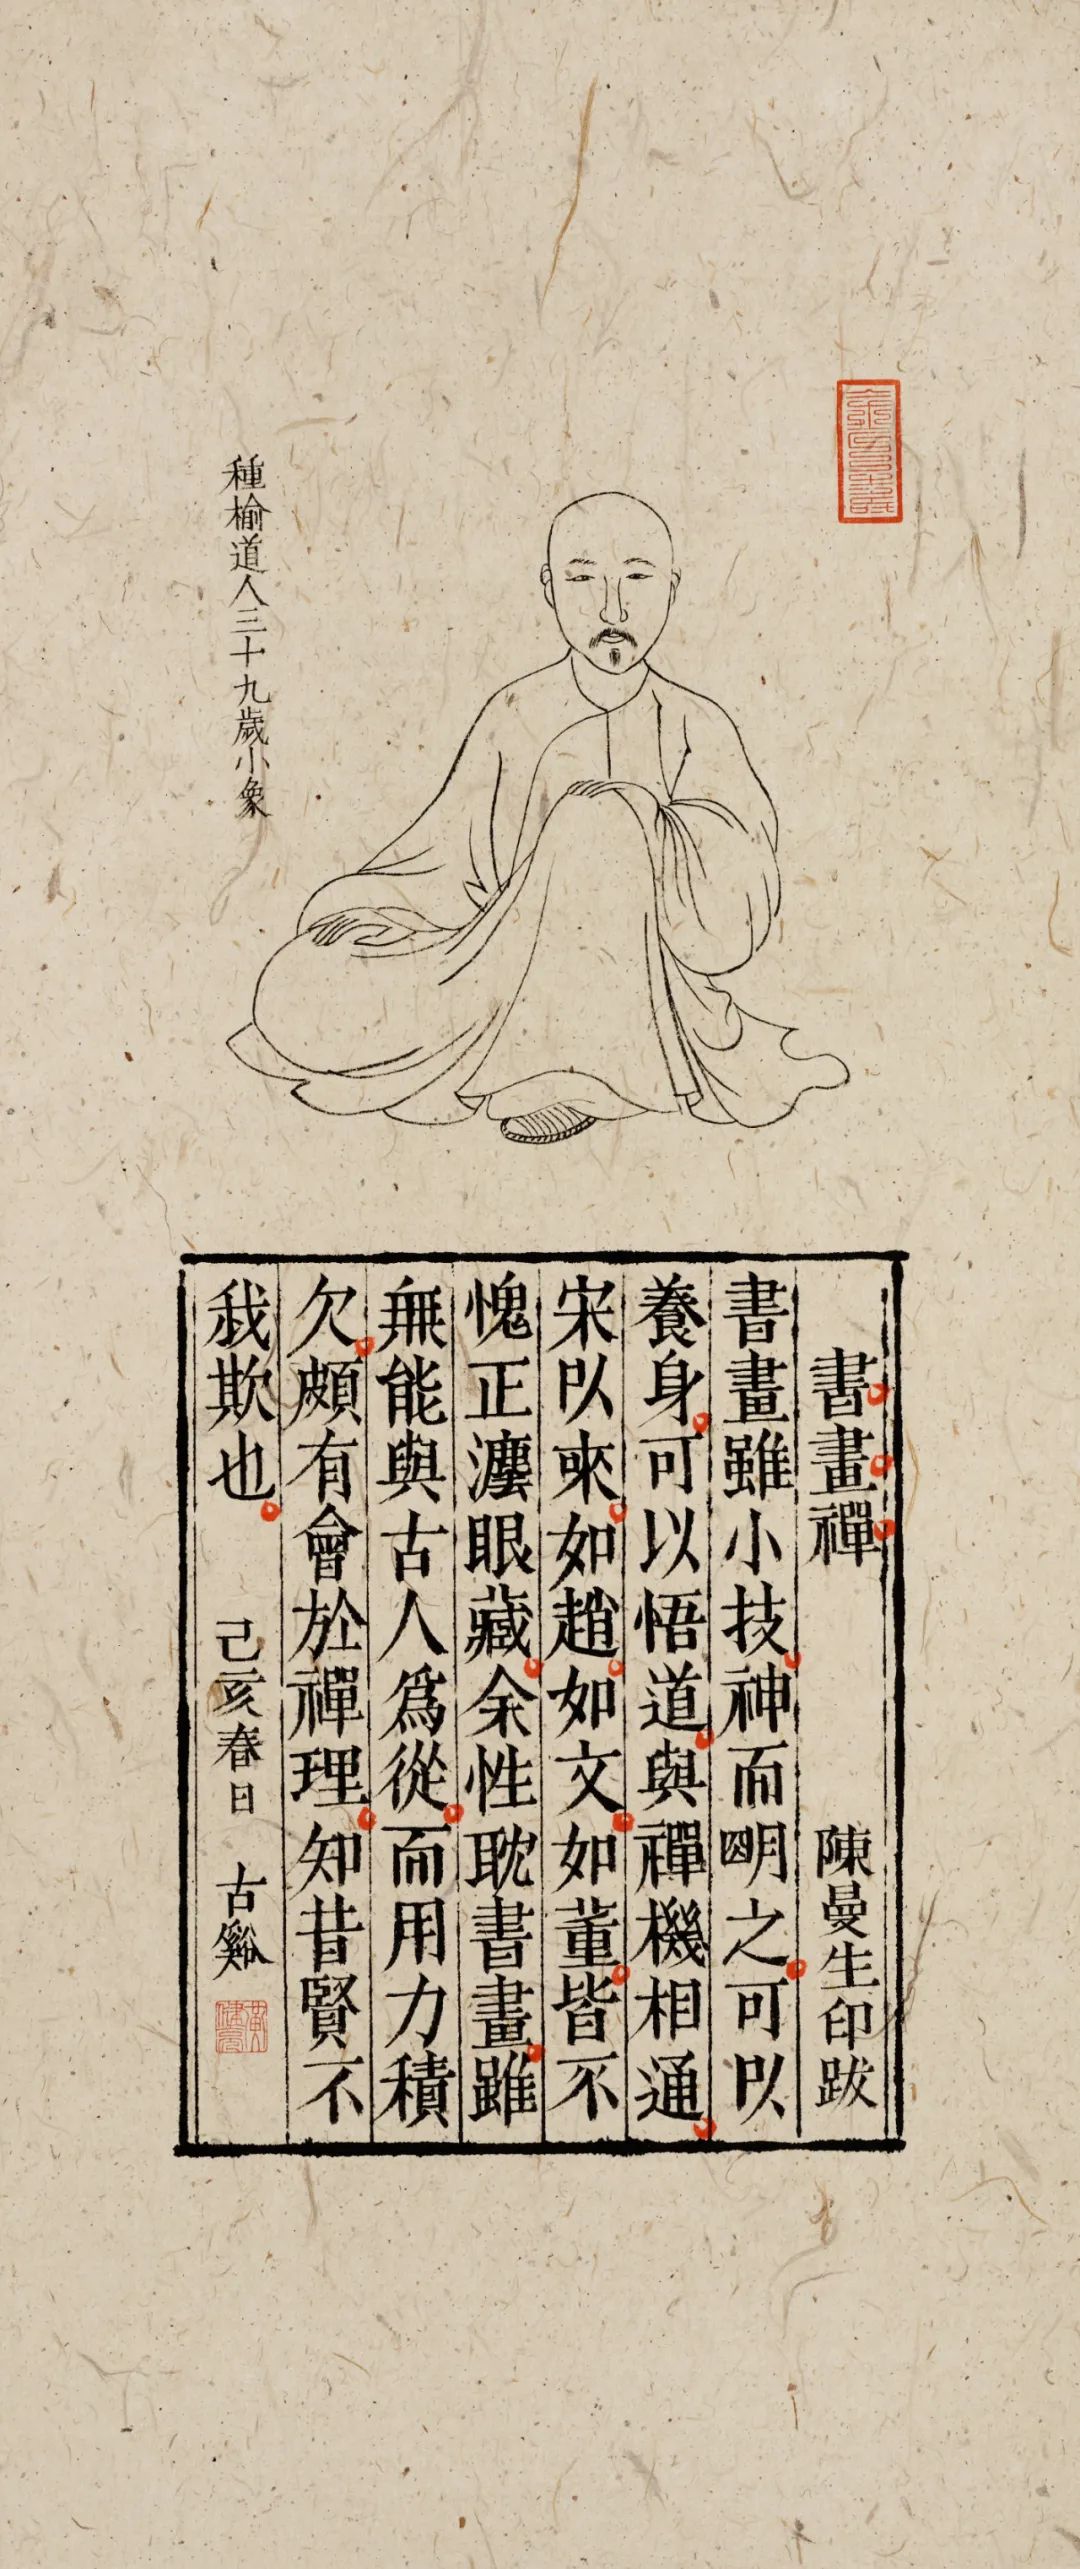 種榆道人三十九歲小象
書畫禪
陳曼生印跋
書畫雖小技神而明之可以
養身可以悟道與禪機相通
宋以來如趙如文如董皆不
愧正瀍眼藏余性耽書畫雖
無能與古人為從而用力積
欠頗有會於禪理知昔賢不
我欺也
己亥春日
古谿